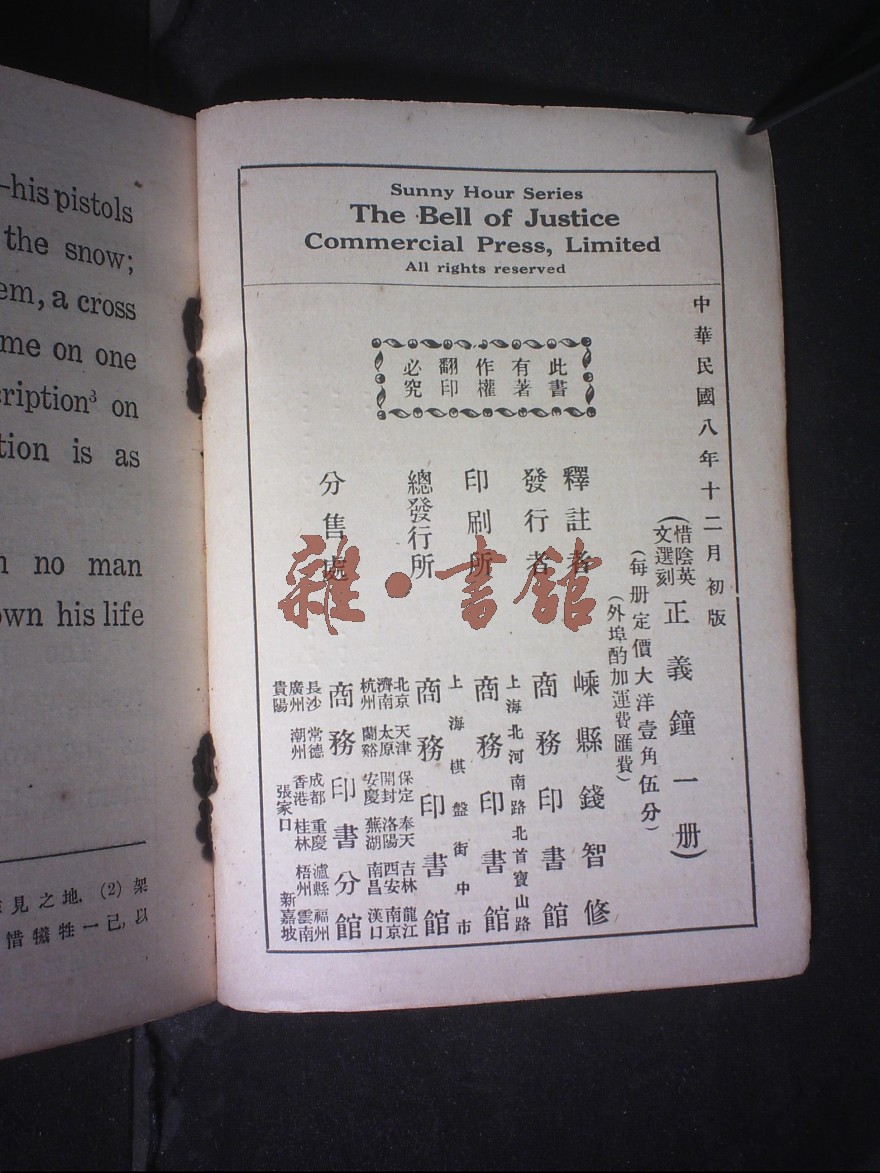 -his pistols
the snow;
em, a cross
me on one
cription³ on
tion is as
no man
own his life
見之地. (2) 架
惜犧牲一己, 以
Sunny Hour Series
The Bell of Justice
Commercial Press, Limited
All rights reserved
中華民國八年十二月初版
(惜陰英文選刻 正義鐘一册)
(每册定價大洋壹角伍分)
(外埠酌加運費匯費)
此書
有著
作權
翻印
必究
釋註者 嵊縣錢智修
發行者 商務印書館
上海北河南路北首寶山路
印刷所 商務印書館
上海棋盤街中市
總發行所 商務印書館
分售處 商務印書分館
北京 天津 保定 奉天 吉林 龍江
濟南 太原 開封 洛陽 西安 南京
杭州 蘭谿 安慶 蕪湖 南昌 漢口
長沙 常德 成都 重慶 瀘縣 福州
廣州 潮州 香港 桂林 梧州 雲南
貴陽 張家口 新嘉坡
雜·書館